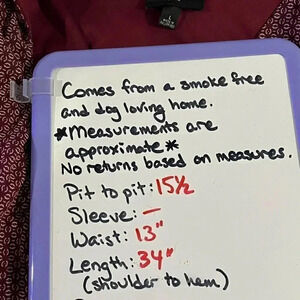 L
Comes from a smoke free
and dog loving home.
*Measurements are
approximate*
No returns based on measures.
Pit to pit: 15½
Sleeve: —
Waist: 13"
Length: 34"
(shoulder to hem)